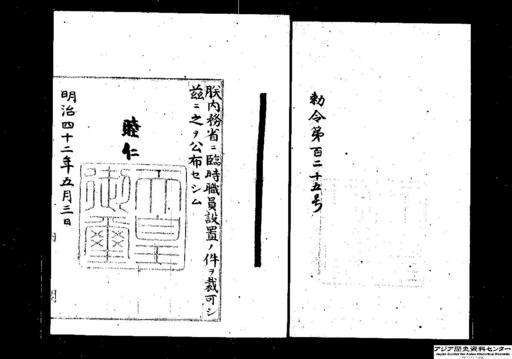 勅令第百二十五号
朕内務省ニ臨時職員設置ノ件ヲ裁可シ
茲ニ之ヲ公布セシム
睦仁
天皇
御璽
明治四十二年五月三日
内
閣
アジア歴史資料センター
Japan Center for Asian Historical Records